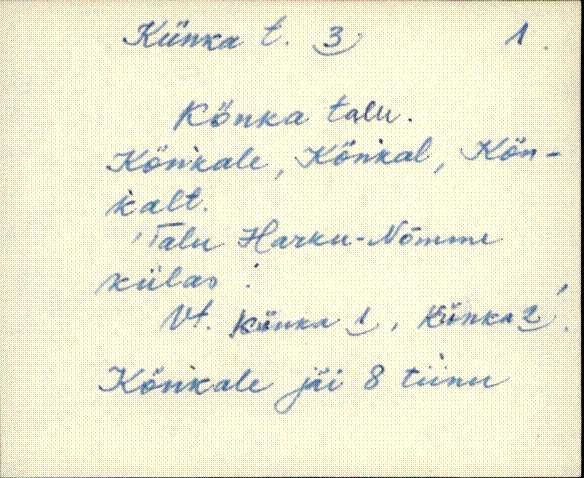 Künka t. 3 1.
Könka talu.
Könkale, Könkal, Kön-
kalt.
'Talu Harku-Nõmme
külas'.
Vt. Könka 1, Könka 2.
Könkale jäi 8 tiinu